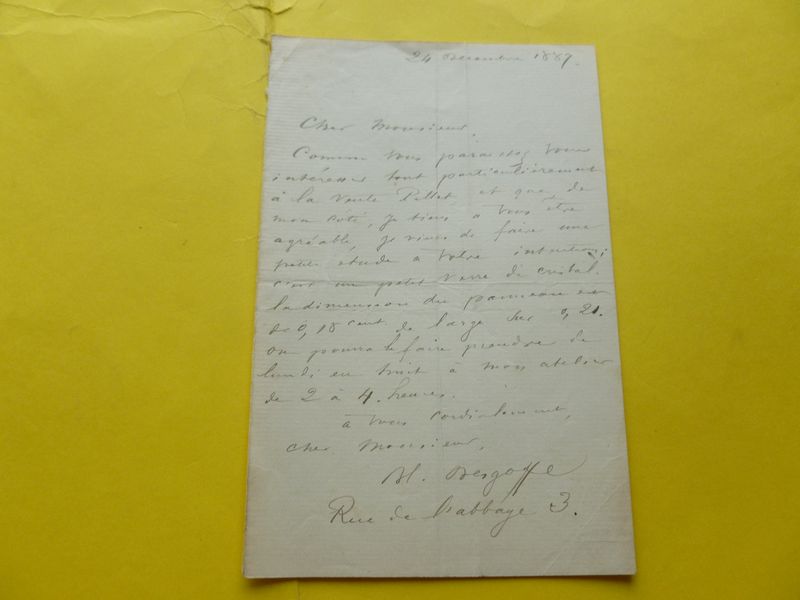 24 Décembre 1889.
Cher Monsieur,
Comme vous paraissez vous
intéresser tout particulièrement
à la vente Pillet, et que, de
mon coté, je tiens a vous être
agréable, je viens de faire une
petite étude a votre intention;
c'est un petit verre de cristal.
la dimension du panneau est
de 0,18 cent. de large sur 0,21.
on pourra le faire prendre de
lundi en huit à mon atelier
de 2 à 4 heures.
à vous cordialement,
cher Monsieur,
Bl. Desgoffe
Rue de l'abbaye 3.